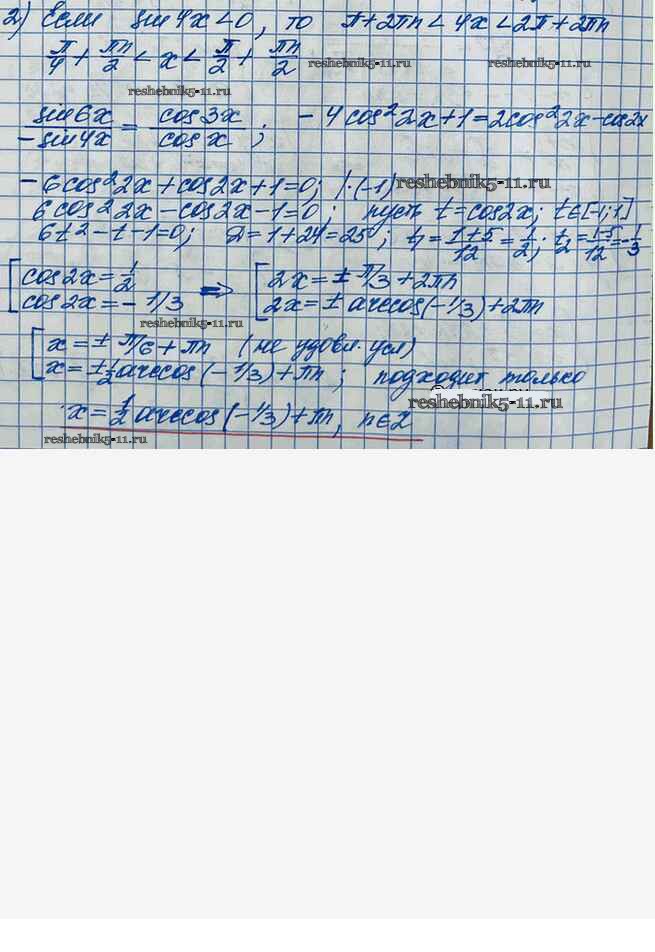 2) Если sin4x<0, то π+2πn<4x<2π+2πn
π/4+πn/2<x<π/2+πn/2 reshebnik5-11.ru reshebnik5-11.ru
reshebnik5-11.ru
sin6x/-sin4x=cos3x/cosx; -4cos²2x+1=2cos²2x-cos2x
-6cos²2x+cos2x+1=0; /·(-1) reshebnik5-11.ru
6cos²2x-cos2x-1=0; пусть t=cos2x; t∈[-1;1]
6t²-t-1=0; D=1+24=25; t₁=1+5/12=1/2; t₂=1-5/12=-1/3
[cos2x=1/2 [2x=±π/3+2πn
cos2x=-1/3 => 2x=±arccos(-1/3)+2πn
reshebnik5-11.ru
[x=±π/6+πn (не удовл. усл)
x=±1/2arccos(-1/3)+πn; подходит только
reshebnik5-11.ru
x=1/2arccos(-1/3)+πn, n∈Z
reshebnik5-11.ru